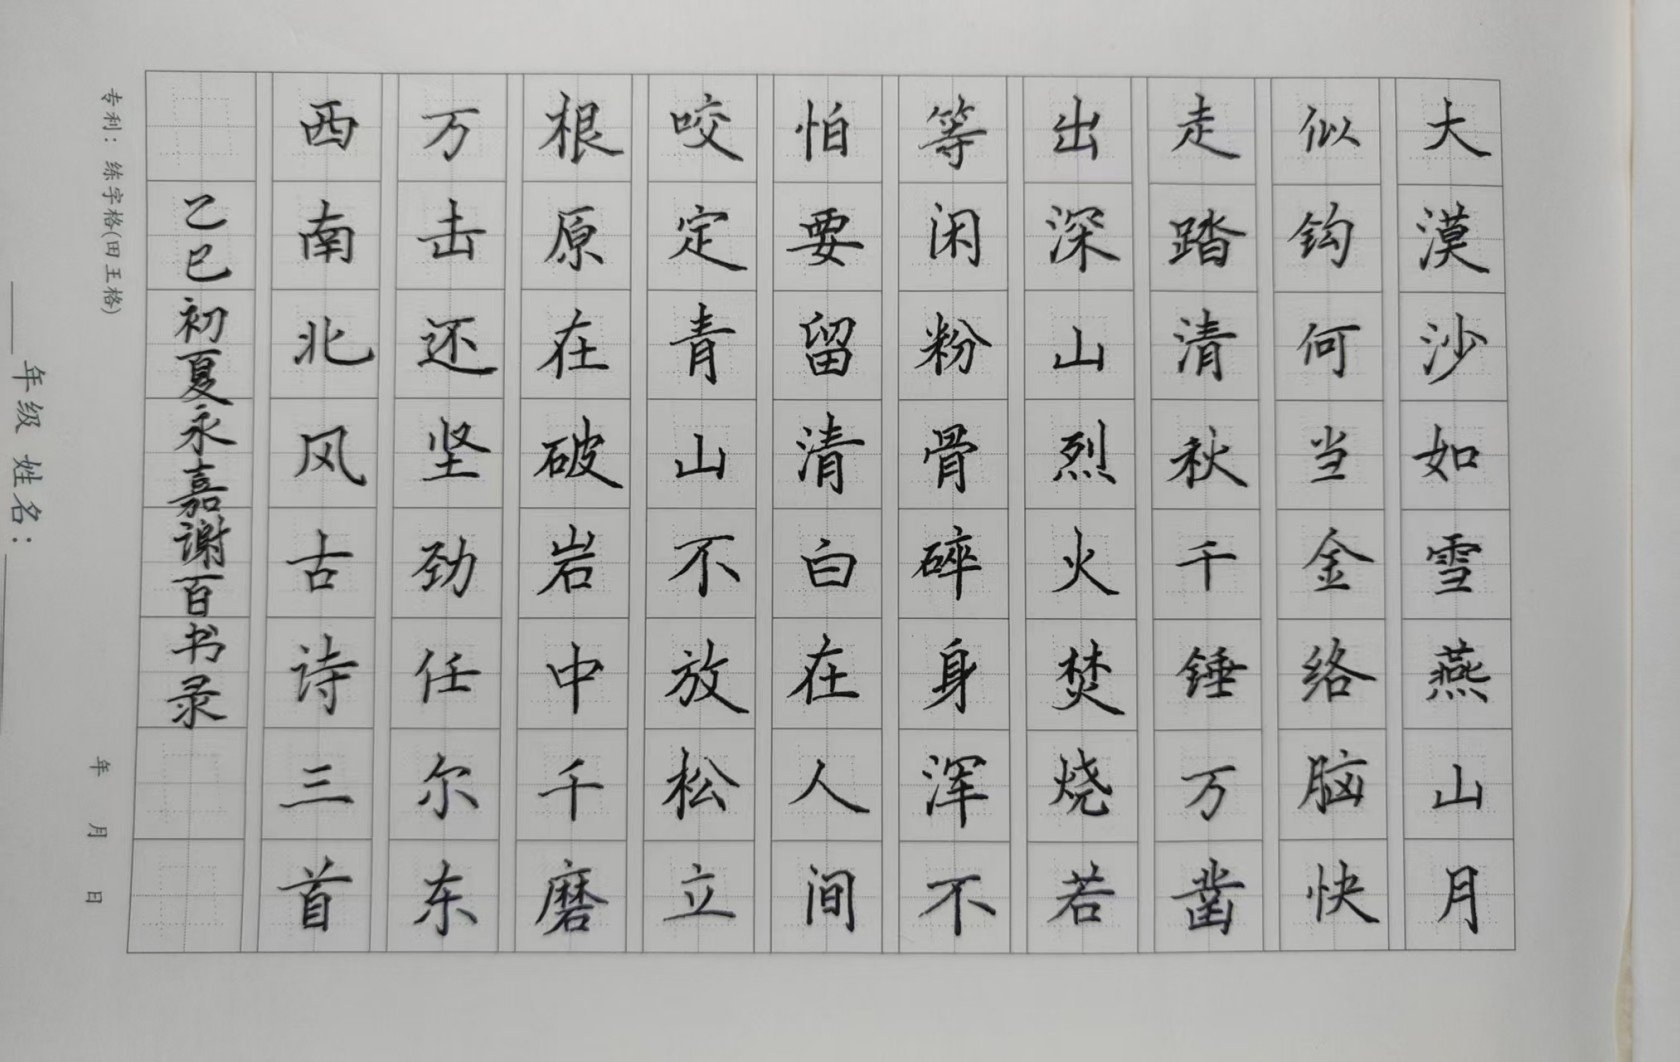 大漠沙如雪燕山月
似钩何当金络脑快
走踏清秋千锤万凿
出深山烈火焚烧若
等闲粉骨碎身浑不
怕要留清白在人间
咬定青山不放松立
根原在破岩中千磨
万击还坚劲任尔东
西南北风古诗三首
乙巳初夏永嘉谢百书录
专利：练字格(田王格)
年 月 日
年级 姓名：